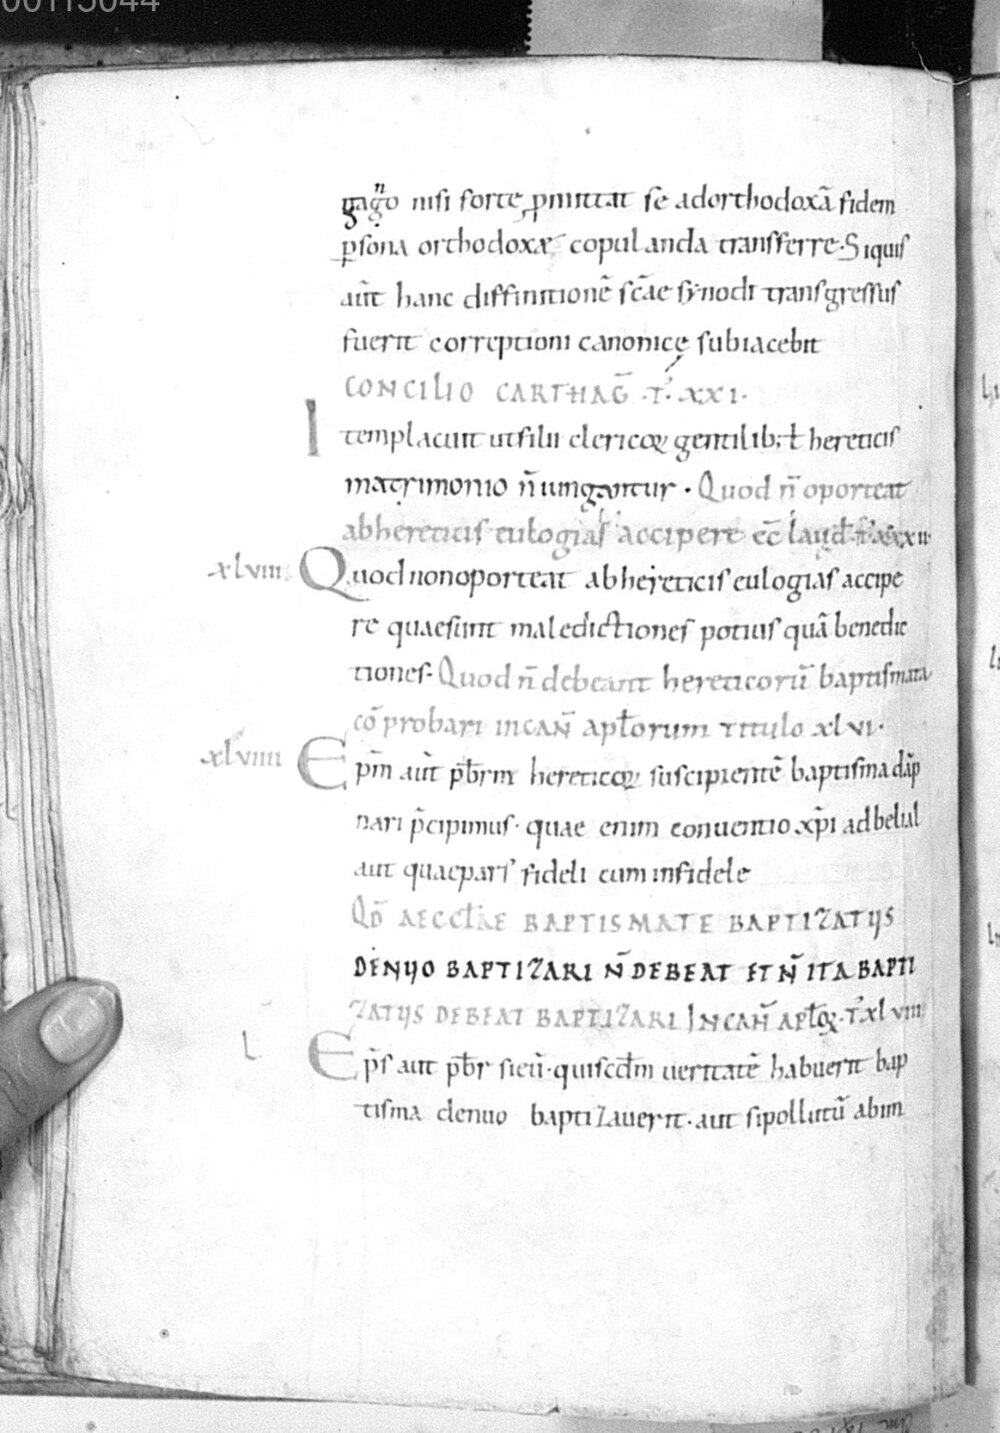 00115044
gago nisi forte p̄mittat se adorthodoxā fidem
ꝑsona orthodoxæ copulanda transferre. Siquis
aūt hanc diffinitionē sc̄ae synodi transgressus
fuerit correptioni canonicę subiacebit
CONCILIO CARTHAḠ .T. XXI.
Itemplacuit utfilii clericoꝝ gentilib; ł hereticis
matrimonio n̄ iungantur. Quod n̄ oporteat
abhereticis eulogias accipere
xlviii Quod nonoporteat abhereticis eulogias accipe
re quaesunt maledictiones potius quā benedic
tiones. Quod n̄ debeant hereticorū baptismata
cō probari incan̄ apł̄orum titulo xlvi.
xlviiii Ep̄m aūt p̄b̄rm hereticoꝝ suscipientē baptisma dāp
nari p̄cipimus. quae enim conuentio xp̄i adbelial
aut quaepars fideli cum infidele
QD̄ AECCŁAE BAPTISMATE BAPTIZATUS
DENUO BAPTIZARI N̄ DEBEAT ET N̄ ITA BAPTI
ZATUS DEBEAT BAPTIZARI INCAN̄ APŁOꝜ. T. xlviii
L. Ep̄s aut p̄b̄r sieū. quiscd̄m ueritatē habuerit bap
tisma denuo baptizauerit. aut sipollutū abim